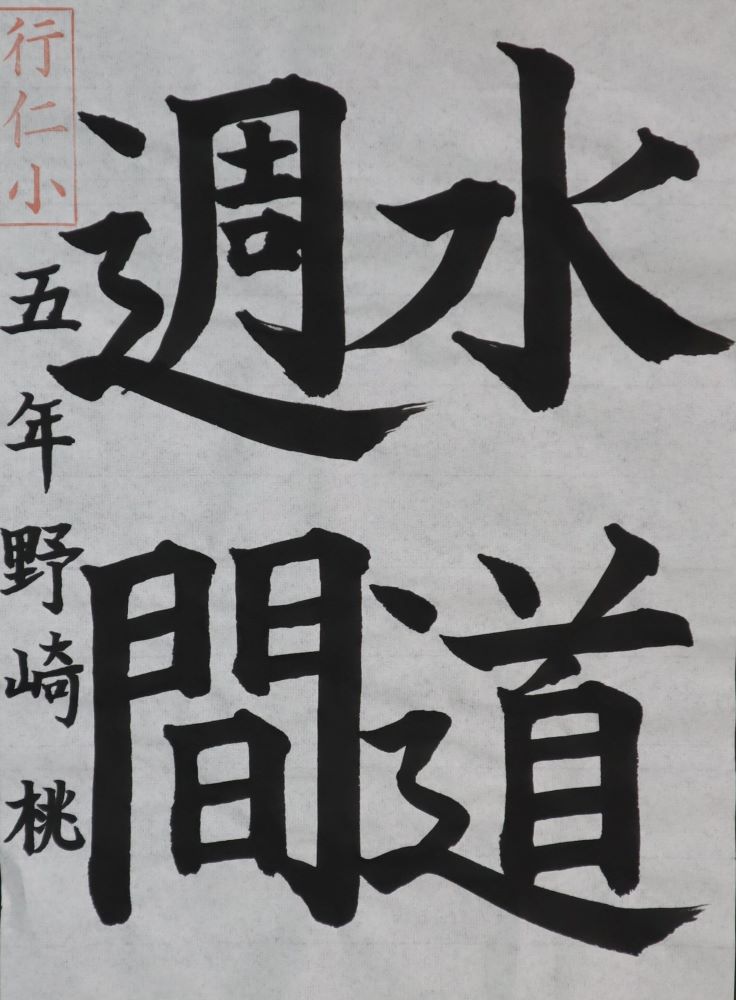 水道
週間
行仁小
五年野崎桃